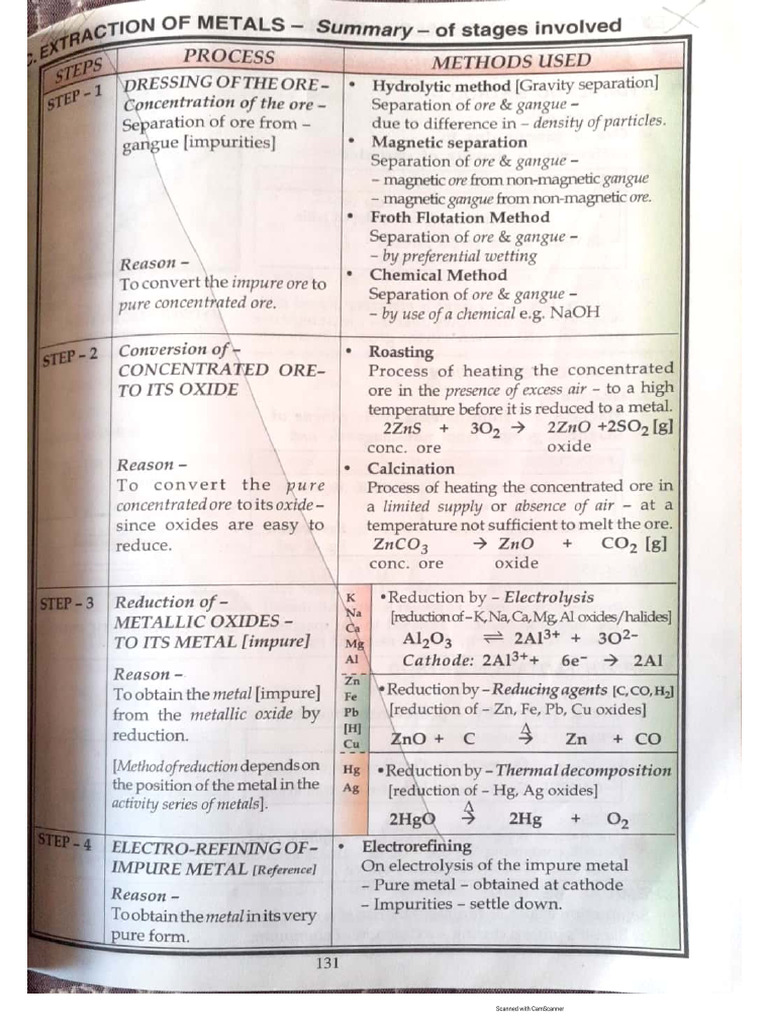 C. EXTRACTION OF METALS – Summary – of stages involved
STEPS PROCESS METHODS USED
STEP – 1
DRESSING OF THE ORE –
Concentration of the ore –
Separation of ore from –
gangue [impurities]
Reason –
To convert the impure ore to
pure concentrated ore.
• Hydrolytic method [Gravity separation]
Separation of ore & gangue –
due to difference in – density of particles.
• Magnetic separation
Separation of ore & gangue –
– magnetic ore from non-magnetic gangue
– magnetic gangue from non-magnetic ore.
• Froth Flotation Method
Separation of ore & gangue –
– by preferential wetting
• Chemical Method
Separation of ore & gangue –
– by use of a chemical e.g. NaOH
STEP – 2
Conversion of –
CONCENTRATED ORE–
TO ITS OXIDE
Reason –
To convert the pure
concentrated ore to its oxide –
since oxides are easy to
reduce.
• Roasting
Process of heating the concentrated
ore in the presence of excess air – to a high
temperature before it is reduced to a metal.
2ZnS + 3O₂ → 2ZnO +2SO₂ [g]
conc. ore oxide
• Calcination
Process of heating the concentrated ore in
a limited supply or absence of air – at a
temperature not sufficient to melt the ore.
ZnCO₃ → ZnO + CO₂ [g]
conc. ore oxide
STEP – 3
Reduction of –
METALLIC OXIDES –
TO ITS METAL [impure]
Reason –
To obtain the metal [impure]
from the metallic oxide by
reduction.
[Method of reduction depends on
the position of the metal in the
activity series of metals].
K
Na
Ca
Mg
Al
• Reduction by – Electrolysis
[reduction of – K, Na, Ca, Mg, Al oxides/halides]
Al₂O₃ ⇌ 2Al³⁺ + 3O²⁻
Cathode: 2Al³⁺+ 6e⁻ → 2Al
Zn
Fe
Pb
[H]
Cu
• Reduction by – Reducing agents [C, CO, H₂]
[reduction of – Zn, Fe, Pb, Cu oxides]
Δ
ZnO + C → Zn + CO
Hg
Ag
• Reduction by – Thermal decomposition
[reduction of – Hg, Ag oxides]
Δ
2HgO → 2Hg + O₂
STEP – 4
ELECTRO-REFINING OF –
IMPURE METAL [Reference]
Reason –
To obtain the metal in its very
pure form.
• Electrorefining
On electrolysis of the impure metal
– Pure metal – obtained at cathode
– Impurities – settle down.
131
Scanned with CamScanner